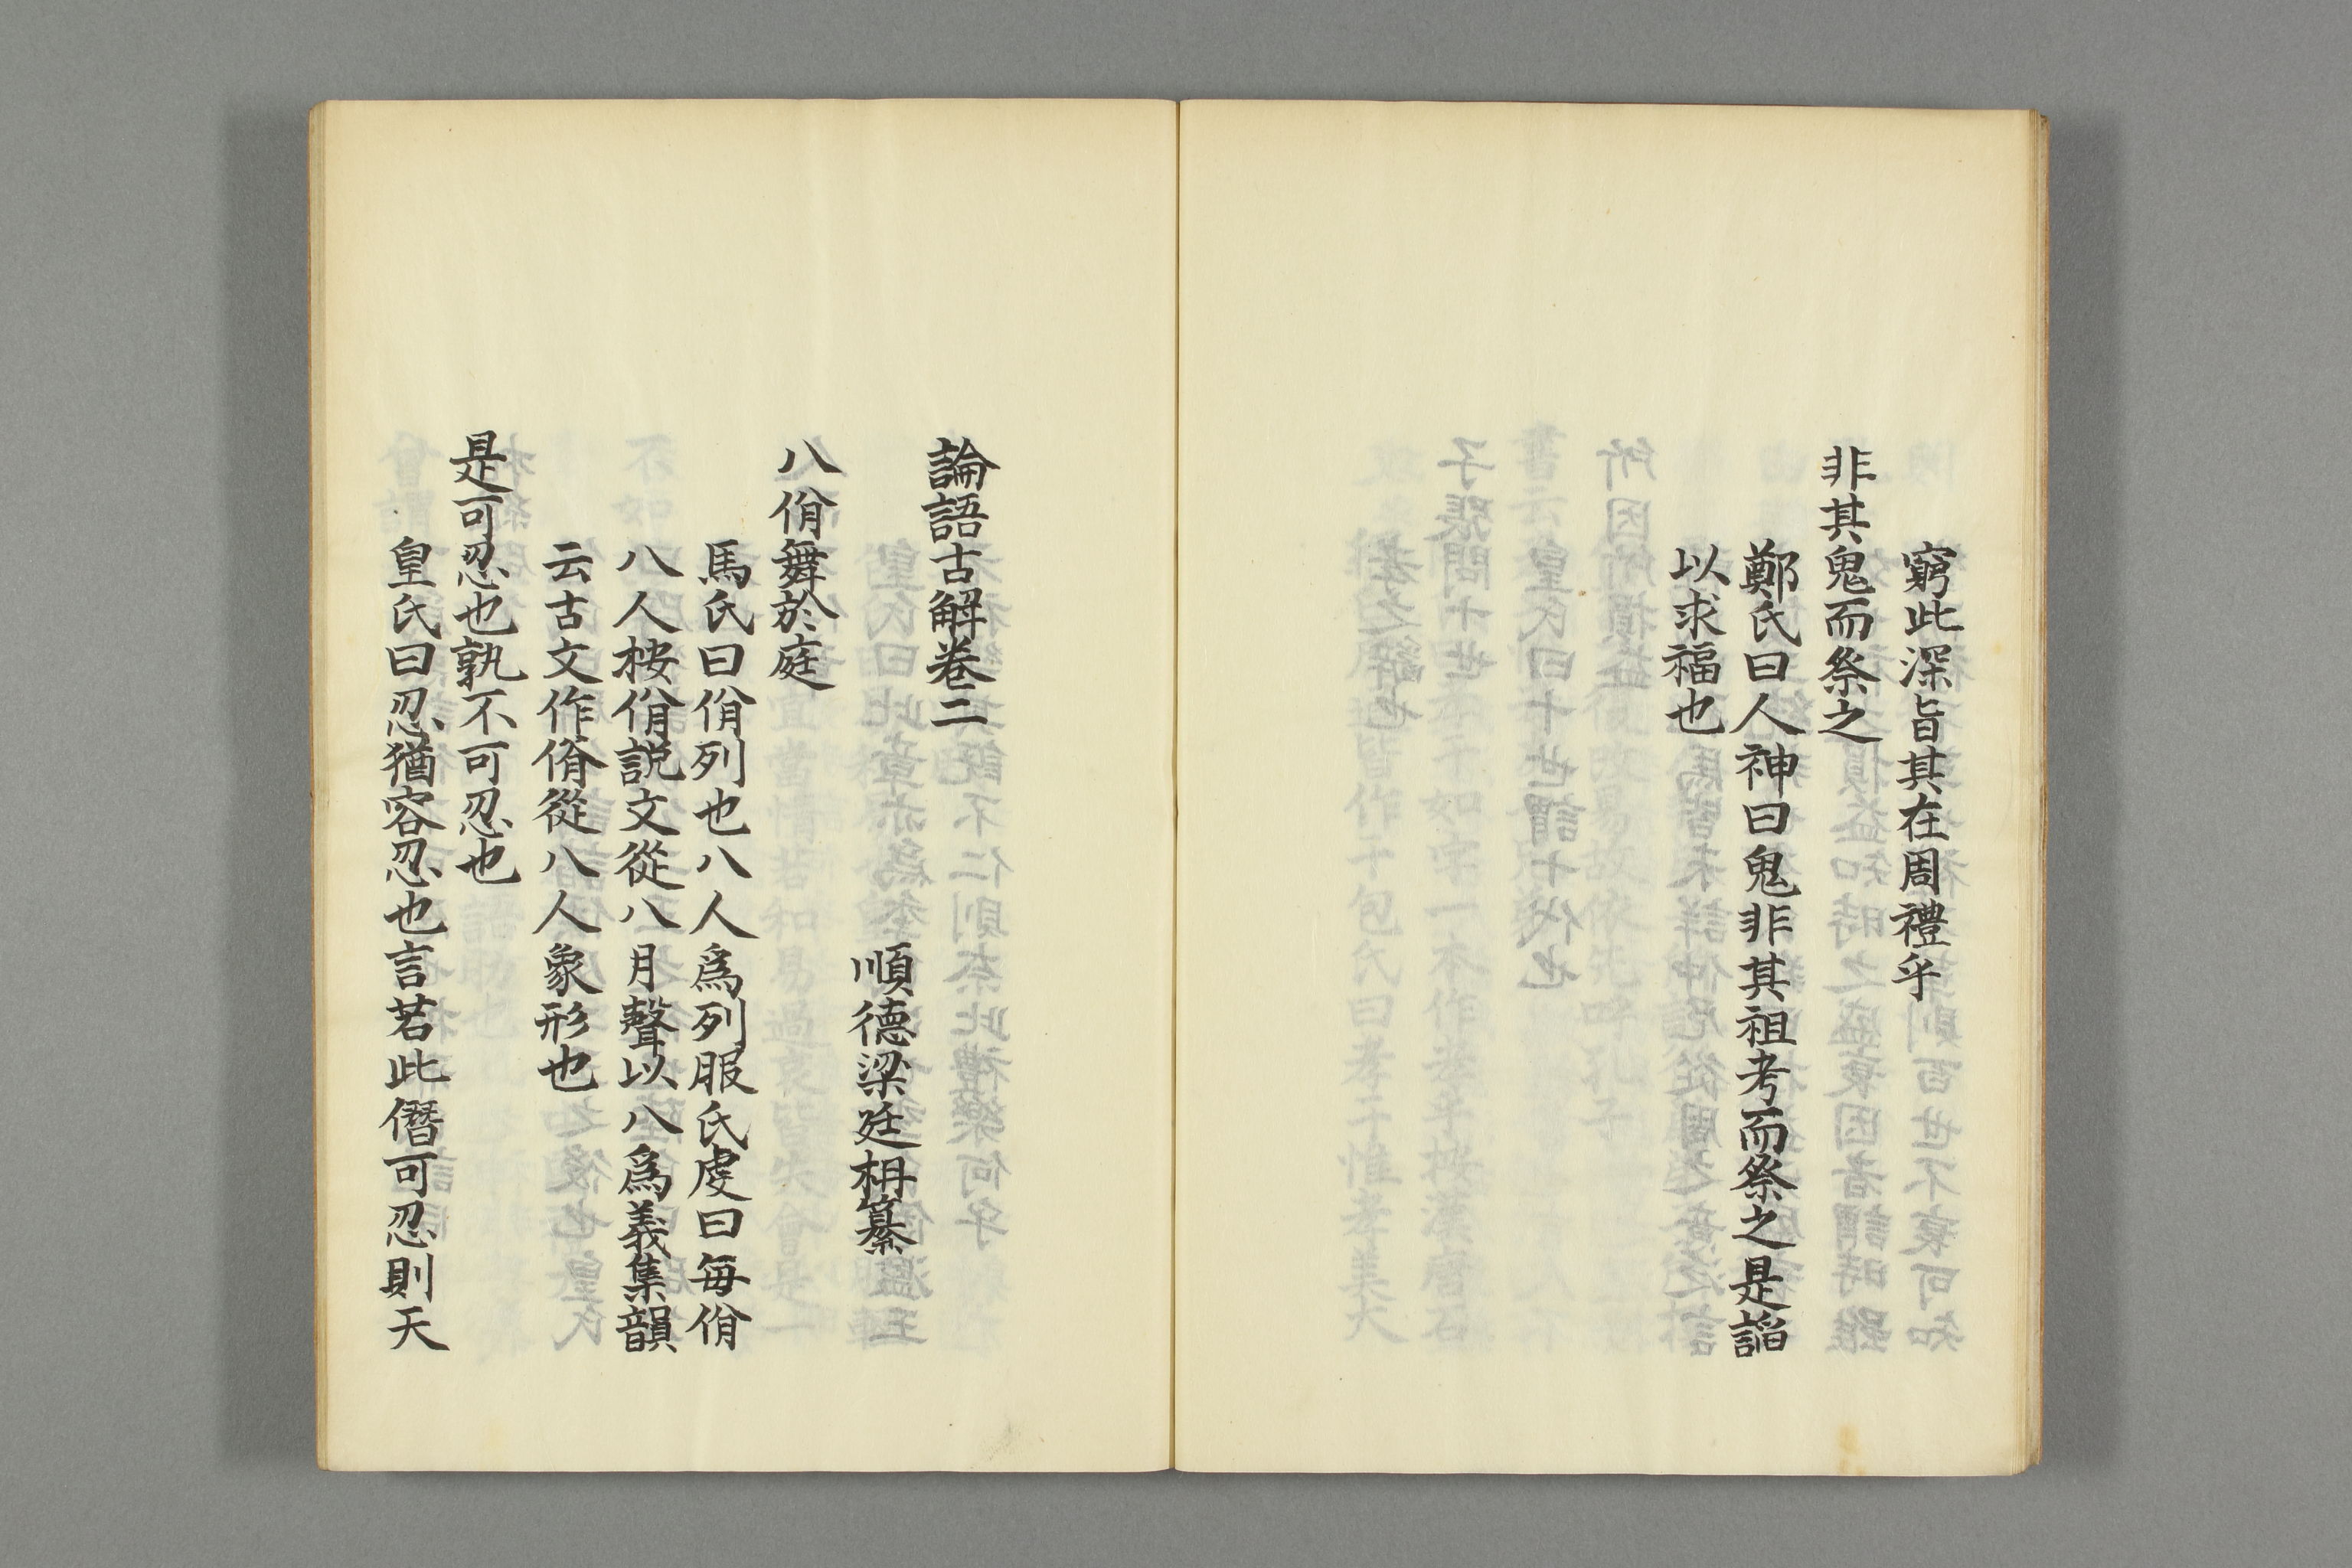 窮此深旨其在周禮乎
非其鬼而祭之
鄭氏曰人神曰鬼非其祖考而祭之是謟
以求福也
論語古解卷二
順德梁廷枏纂
八佾舞於庭
馬氏曰佾列也八人爲列服氏虔曰毎佾
八人桉佾説文從八月聲以八爲義集韻
云古文作㑞從八人象形也
是可忍也孰不可忍也
皇氏曰忍猶容忍也言若此僭可忍則天